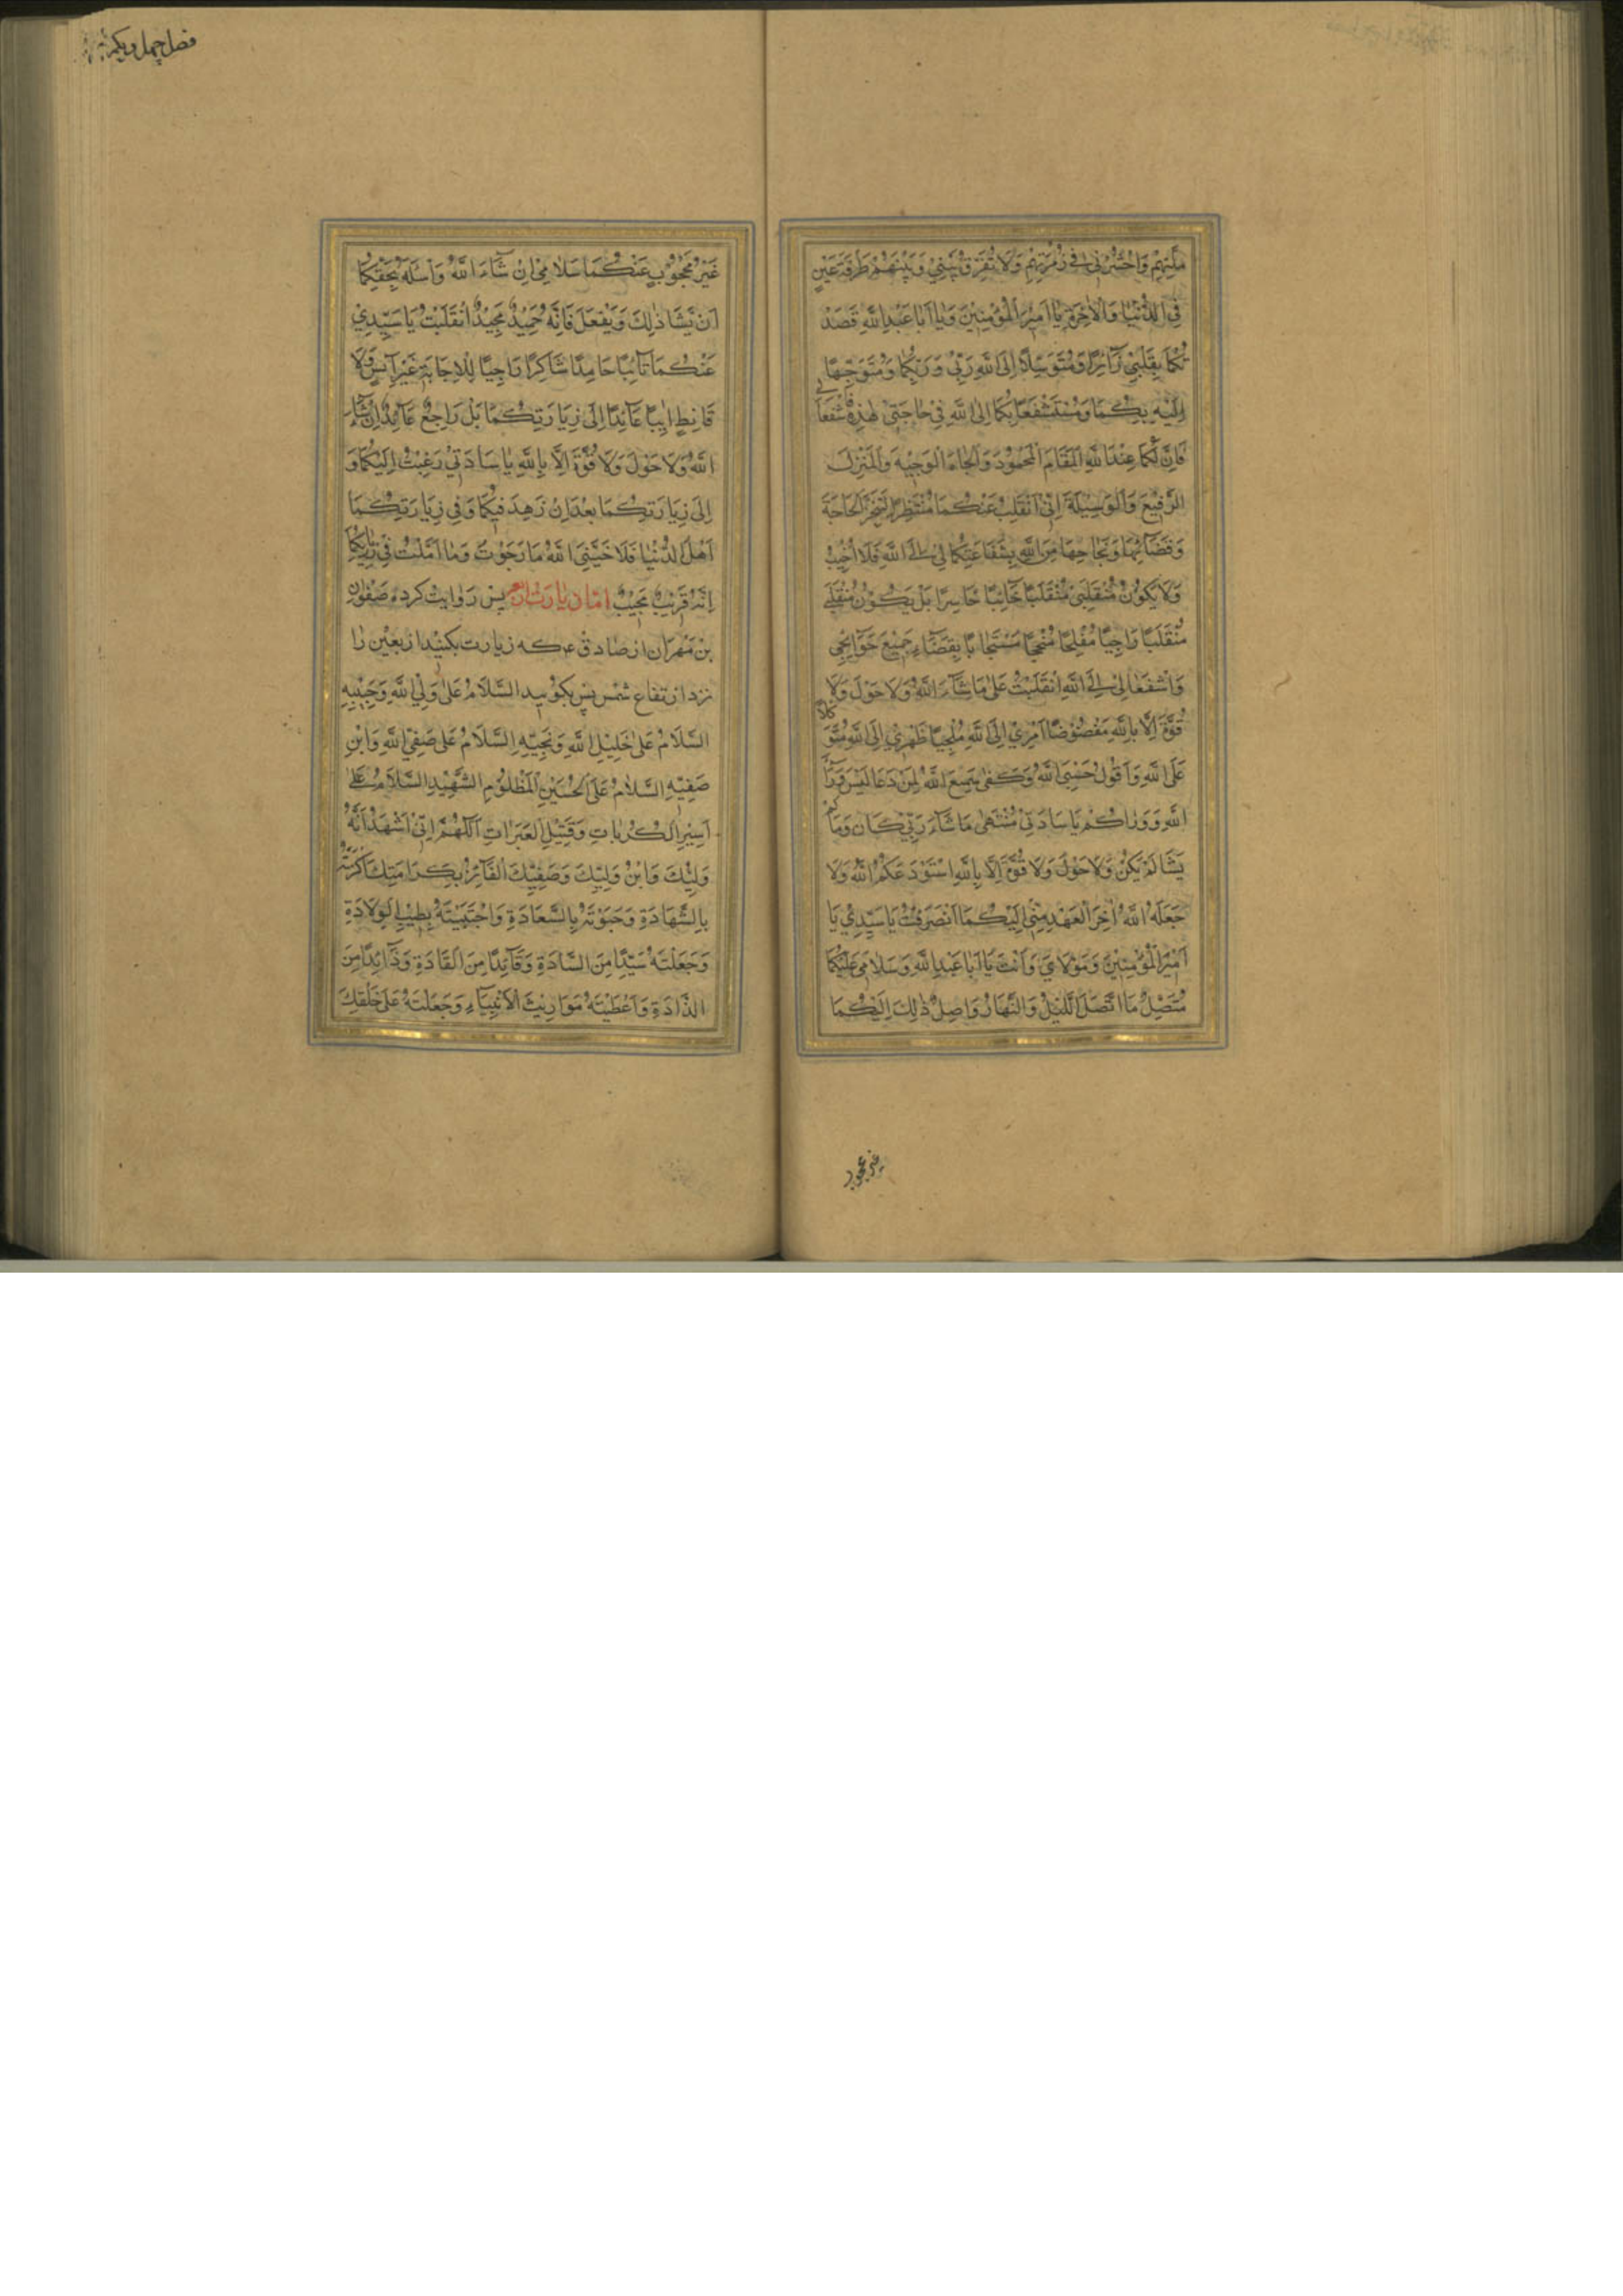 مِلَّتِهِمْ وَاحْشُرْنِي فِي زُمْرَتِهِمْ وَلَا تُفَرِّقْ بَيْنِي وَبَيْنَهُمْ طَرْفَةَ عَيْنٍ
فِي الدُّنْيَا وَالْاٰخِرَةِ يَا اَمِيْرَ الْمُؤْمِنِيْنَ وَيَا اَبَا عَبْدِ اللّٰهِ قَصَدْ
تُكُمَا بِقَلْبِيْ زَآئِرًا وَمُتَوَسِّلًا اِلَى اللّٰهِ رَبِّيْ وَرَبِّكُمَا وَمُتَوَجِّهًا
اِلَيْهِ بِكُمَا وَمُسْتَشْفِعًا بِكُمَا اِلَى اللّٰهِ فِيْ حَاجَتِيْ هٰذِهِ فَاشْفَعَا لِي
فَاِنَّ لَكُمَا عِنْدَ اللّٰهِ الْمَقَامَ الْمَحْمُوْدَ وَالْجَاهَ الْوَجِيْهَ وَالْمَنْزِلَ
الرَّفِيْعَ وَالْوَسِيْلَةَ اِنِّيْ اَنْقَلِبُ عَنْكُمَا مُنْتَظِرًا لِتَنَجُّزِ الْحَاجَةِ
وَقَضَآئِهَا وَنَجَاحِهَا مِنَ اللّٰهِ بِشَفَاعَتِكُمَا لِي اِلَى اللّٰهِ فَلَا اَخِيْبُ
وَلَا يَكُوْنُ مُنْقَلَبِيْ مُنْقَلَبًا خَآئِبًا خَاسِرًا بَلْ يَكُوْنُ مُنْقَلَبِي
مُنْقَلَبًا رَاجِيًا مُفْلِحًا مُنْجِحًا مُسْتَجَابًا بِقَضَآءِ جَمِيْعِ حَوَآئِجِي
وَاشْفَعَا لِي اِلَى اللّٰهِ اِنْقَلَبْتُ عَلٰى مَا شَآءَ اللّٰهُ وَلَا حَوْلَ وَلَا
قُوَّةَ اِلَّا بِاللّٰهِ مُفَوِّضًا اَمْرِيْ اِلَى اللّٰهِ مُلْجِئًا ظَهْرِيْ اِلَى اللّٰهِ مُتَوَكِّلًا
عَلَى اللّٰهِ وَاَقُوْلُ حَسْبِيَ اللّٰهُ وَكَفٰى سَمِعَ اللّٰهُ لِمَنْ دَعَا لَيْسَ وَرَآءَ
اللّٰهِ وَوَرَاكُمْ يَا سَادَتِيْ مُنْتَهٰى مَا شَآءَ رَبِّيْ كَانَ وَمَا لَمْ
يَشَا لَمْ يَكُنْ وَلَا حَوْلَ وَلَا قُوَّةَ اِلَّا بِاللّٰهِ اسْتَوْدَعَكُمُ اللّٰهُ وَلَا
جَعَلَهُ اللّٰهُ اٰخِرَ الْعَهْدِ مِنِّيْ اِلَيْكُمَا اَنْصَرَفْتُ يَا سَيِّدِيْ يَا
اَمِيْرَ الْمُؤْمِنِيْنَ وَمَوْلَايَ وَاَنْتَ يَا اَبَا عَبْدِ اللّٰهِ وَسَلَامِيْ عَلَيْكُمَا
مُتَّصِلٌ مَا اتَّصَلَ اللَّيْلُ وَالنَّهَارُ وَاصِلٌ ذٰلِكَ اِلَيْكُمَا
غير محجوب
فصل چهل ويكم
غَيْرُ مَحْجُوْبٍ عَنْكُمَا سَلَامِيْ اِنْ شَآءَ اللّٰهُ وَاَسْئَلُهُ بِحَقِّكُمَا
اَنْ يَّشَا ذٰلِكَ وَيَفْعَلَ فَاِنَّهُ حَمِيْدٌ مَجِيْدٌ اَنْقَلَبْتُ يَا سَيِّدِيْ
عَنْكُمَا تَآئِبًا حَامِدًا شَاكِرًا رَاجِيًا لِلْاِجَابَةِ غَيْرَ اٰيِسٍ وَلَا
قَانِطٍ اٰيِبًا عَآئِدًا اِلٰى زِيَارَتِكُمَا بَلْ رَاجِعٌ عَآئِدٌ اِنْ شَآءَ
اللّٰهُ وَلَا حَوْلَ وَلَا قُوَّةَ اِلَّا بِاللّٰهِ يَا سَادَتِيْ رَغِبْتُ اِلَيْكُمَا وَ
اِلٰى زِيَارَتِكُمَا بَعْدَ اَنْ زَهِدَ فِيْكُمَا وَفِيْ زِيَارَتِكُمَا
اَهْلُ الدُّنْيَا فَلَا خَيَّبَنِيَ اللّٰهُ مَا رَجَوْتُ وَمَا اَمَّلْتُ فِيْ زِيَارَتِكُمَا
اِنَّهُ قَرِيْبٌ مُجِيْبٌ اما زيارت اربعين پس روايت كرده صفوان
بن مهران از صادق ع كه زيارت بكنيد اربعين را
نزد ارتفاع شمس پس بگوييد السَّلَامُ عَلٰى وَلِيِّ اللّٰهِ وَحَبِيْبِهِ
السَّلَامُ عَلٰى خَلِيْلِ اللّٰهِ وَنَجِيْبِهِ السَّلَامُ عَلٰى صَفِيِّ اللّٰهِ وَابْنِ
صَفِيِّهِ السَّلَامُ عَلَى الْحُسَيْنِ الْمَظْلُوْمِ الشَّهِيْدِ السَّلَامُ عَلٰى
اَسِيْرِ الْكُرُبَاتِ وَقَتِيْلِ الْعَبَرَاتِ اَللّٰهُمَّ اِنِّيْ اَشْهَدُ اَنَّهُ
وَلِيُّكَ وَابْنُ وَلِيِّكَ وَصَفِيُّكَ الْفَآئِزُ بِكَرَامَتِكَ اَكْرَمْتَهُ
بِالشَّهَادَةِ وَحَبَوْتَهُ بِالسَّعَادَةِ وَاجْتَبَيْتَهُ بِطِيْبِ الْوِلَادَةِ
وَجَعَلْتَهُ سَيِّدًا مِنَ السَّادَةِ وَقَآئِدًا مِنَ الْقَادَةِ وَذَآئِدًا مِنَ
الذَّادَةِ وَاَعْطَيْتَهُ مَوَارِيْثَ الْاَنْبِيَآءِ وَجَعَلْتَهُ عَلٰى خَلْقِكَ